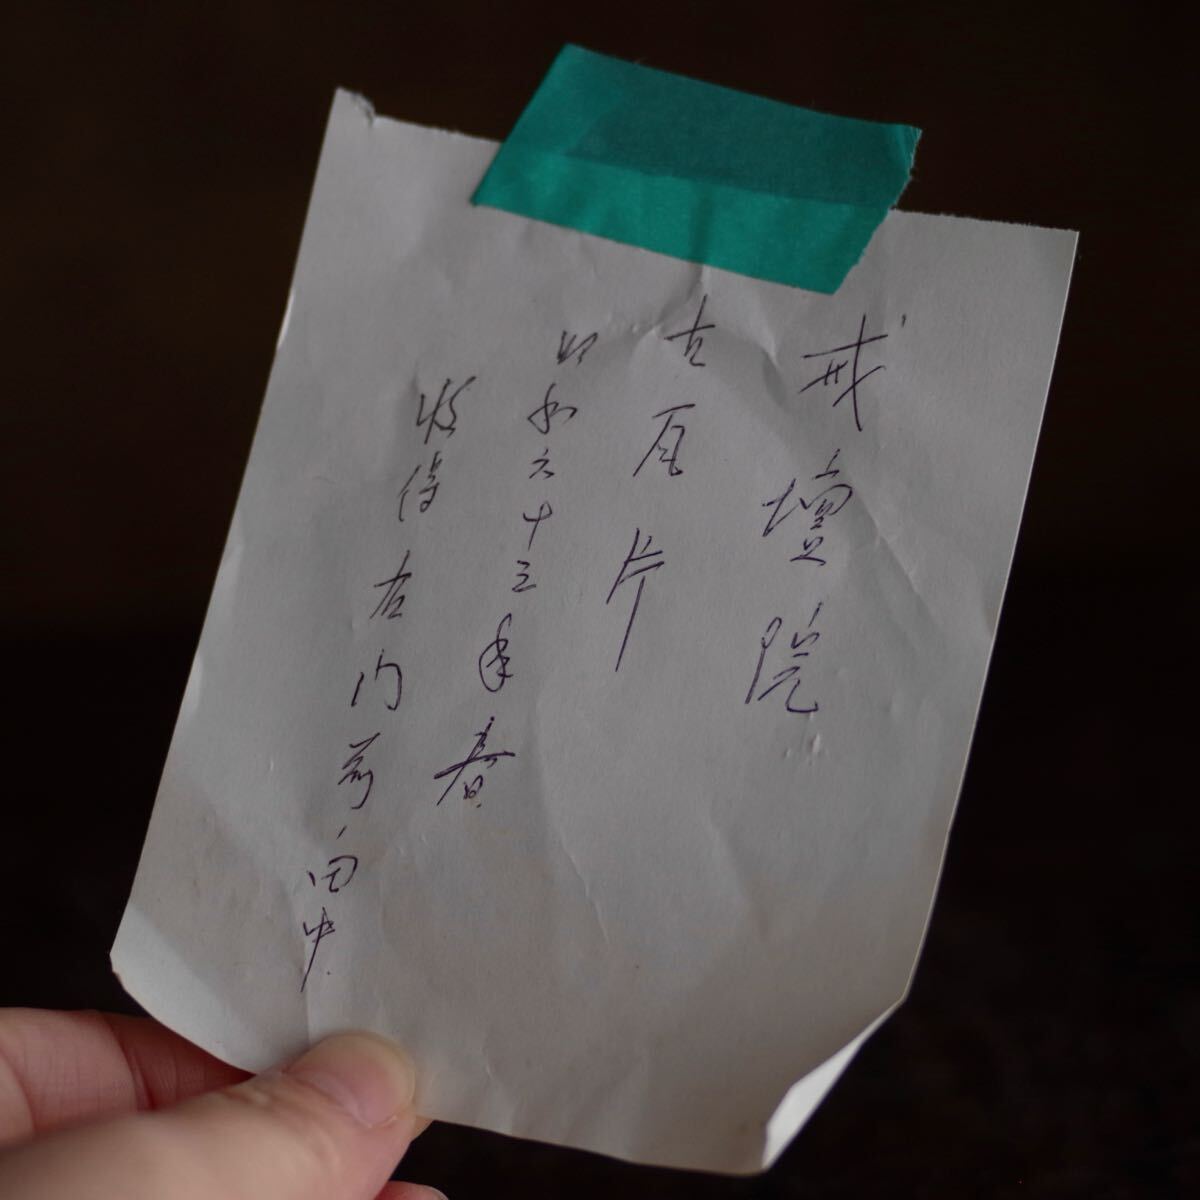 戒壇院
古瓦片
昭和六十三年春
拾得 右門前 田中